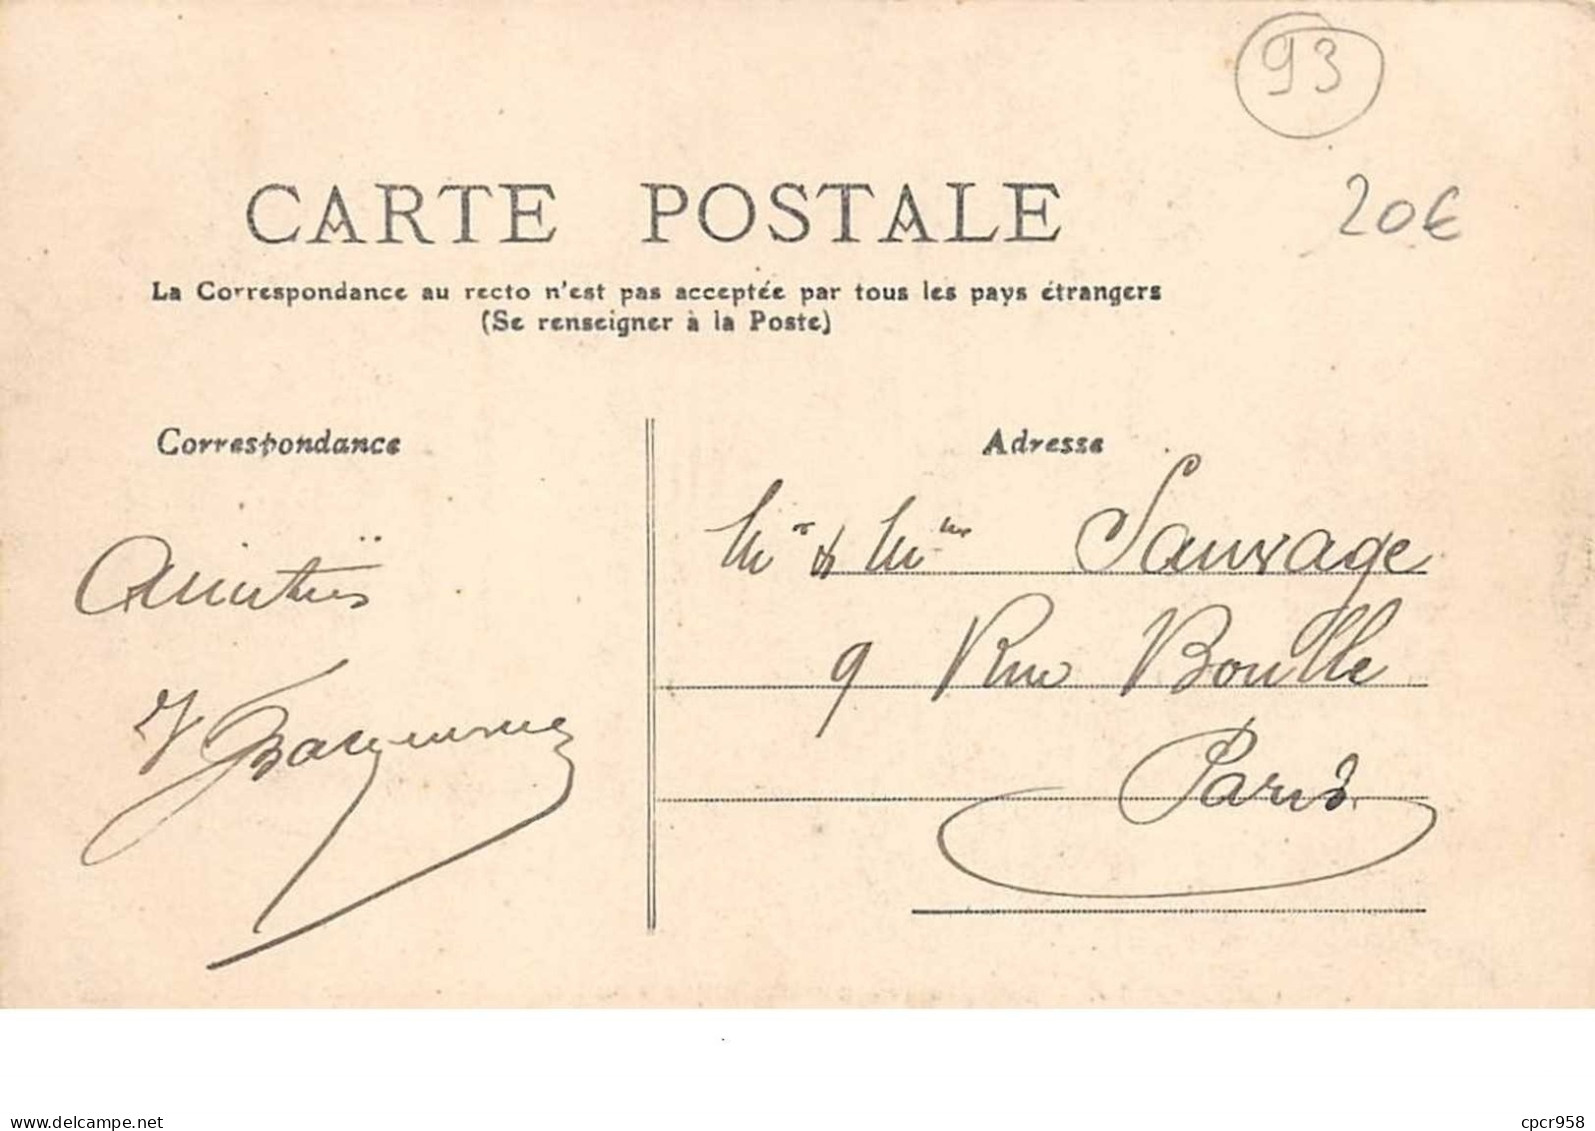 93
20€
CARTE POSTALE
La Correspondance au recto n'est pas acceptée par tous les pays étrangers
(Se renseigner à la Poste)
Correspondance
Adresse
Amitiés
Mr & Mme Sauvage
9 Rue Boulle
Paris
www.delcampe.net
cpcr958